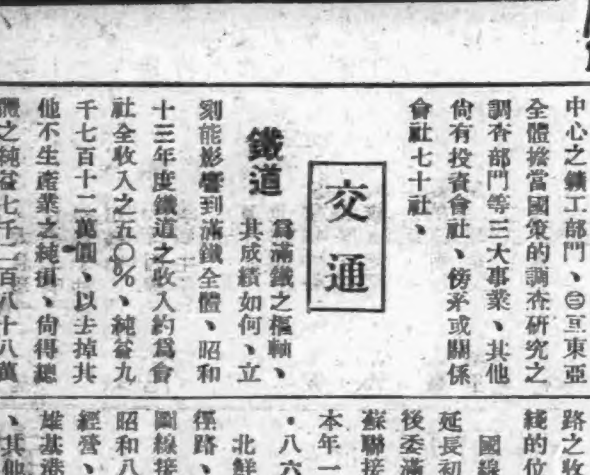 中心之鑛工部門、㊂亘東亞
全體擔當國策的調査研究之
調査部門等三大事業、其他
尙有投資會社、傍系或關係
會社七十社、
交通
鐵道
爲滿鐵之樞軸、
其成績如何、立
刻能影響到滿鐵全體、昭和
十三年度鐵道之收入約爲會
社全收入之五〇%、純益九
千七百十二萬圓、以去掉其
他不生產業之純損、尙得總
體之純益七千二百八十八萬
路之收
綫的估
國線
延長和
後委滿
蘇聯接
本年一
・八六
北鮮
徑路、
圖線接
昭和八
經營、
雄基港
、其他